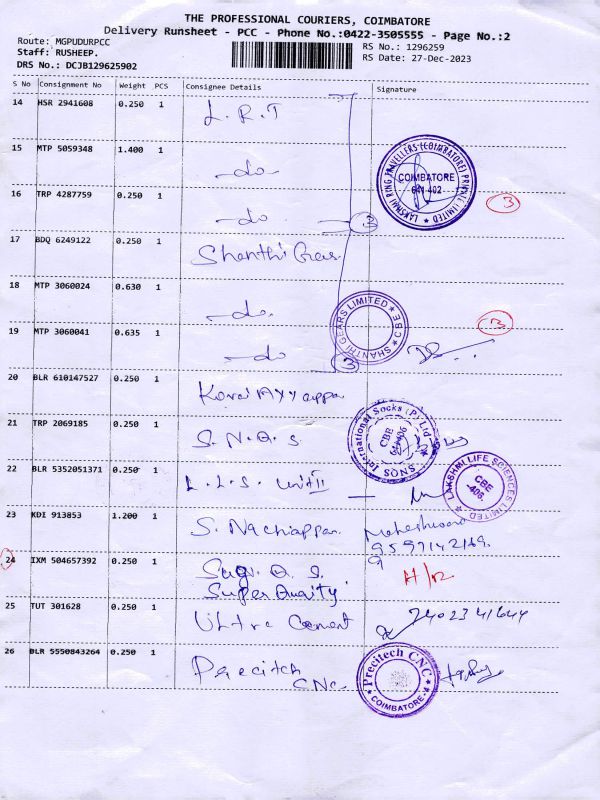 THE PROFESSIONAL COURIERS, COIMBATORE
Delivery Runsheet - PCC - Phone No.:0422-3505555 - Page No.:2
Route: MGPUDURPCC
RS No.: 1296259
Staff: RUSHEEP.
RS Date: 27-Dec-2023
DRS No.: DCJB129625902
S No Consignment No Weight PCS Consignee Details Signature
14 HSR 2941608 0.250 1 L.R.T
15 MTP 5059348 1.400 1 -do-
LAKSHMI RING TRAVELLERS (COIMBATORE) PRIVATE LIMITED
COIMBATORE
641 402
16 TRP 4287759 0.250 1 -do- 3 3
17 BDQ 6249122 0.250 1 Shanthi Gears
18 MTP 3060024 0.630 1 -do-
SHANTHI GEARS LIMITED CBE
3
19 MTP 3060041 0.635 1 -do- 3
20 BLR 610147527 0.250 1 Kovai Ayyappa
21 TRP 2069185 0.250 1 S.N.Q.S
SNQS International Socks (P) Ltd
CBE
22 BLR 5352051371 0.250 1 L.L.S. Unit II
LAKSHMI LIFE SCIENCES LIMITED
CBE
-406.
23 KDI 913853 1.200 1 S. Nachiappan Maheshwari
9597142169.
24 IXM 504657392 0.250 1
25 TUT 301628 0.250 1 Ultra Cement 7402341644
26 BLR 5550843264 0.250 1 Precitech
CNC.
Precitech CNC
COIMBATORE-4